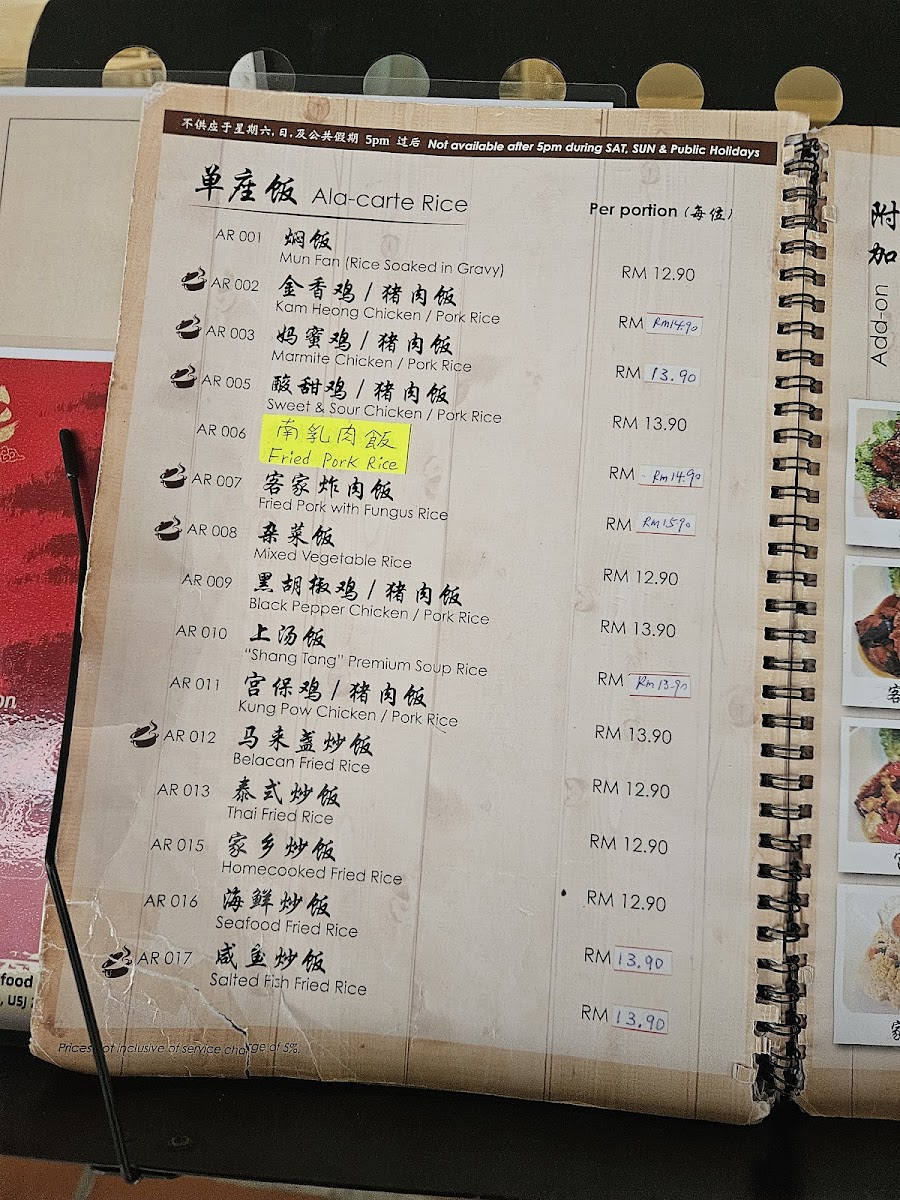 不供应于星期六,日,及公共假期 5pm 过后 Not available after 5pm during SAT, SUN & Public Holidays
单座饭 Ala-carte Rice
Per portion (每位)
AR 001 焖饭
Mun Fan (Rice Soaked in Gravy) RM 12.90
AR 002 金香鸡 / 猪肉饭
Kam Heong Chicken / Pork Rice RM Rm14.90
AR 003 妈蜜鸡 / 猪肉饭
Marmite Chicken / Pork Rice RM 13.90
AR 005 酸甜鸡 / 猪肉饭
Sweet & Sour Chicken / Pork Rice RM 13.90
AR 006 南乳肉飯
Fried Pork Rice RM Rm14.90
AR 007 客家炸肉饭
Fried Pork with Fungus Rice RM Rm15.90
AR 008 杂菜饭
Mixed Vegetable Rice RM 12.90
AR 009 黑胡椒鸡 / 猪肉饭
Black Pepper Chicken / Pork Rice RM 13.90
AR 010 上汤饭
“Shang Tang” Premium Soup Rice RM Rm13.90
AR 011 宫保鸡 / 猪肉饭
Kung Pow Chicken / Pork Rice RM 13.90
AR 012 马来盏炒饭
Belacan Fried Rice RM 12.90
AR 013 泰式炒饭
Thai Fried Rice RM 12.90
AR 015 家乡炒饭
Homecooked Fried Rice RM 12.90
AR 016 海鲜炒饭
Seafood Fried Rice RM 13.90
AR 017 咸鱼炒饭
Salted Fish Fried Rice RM 13.90
Prices not inclusive of service charge of 5%.
附
加
Add-on
on
food
, USJ